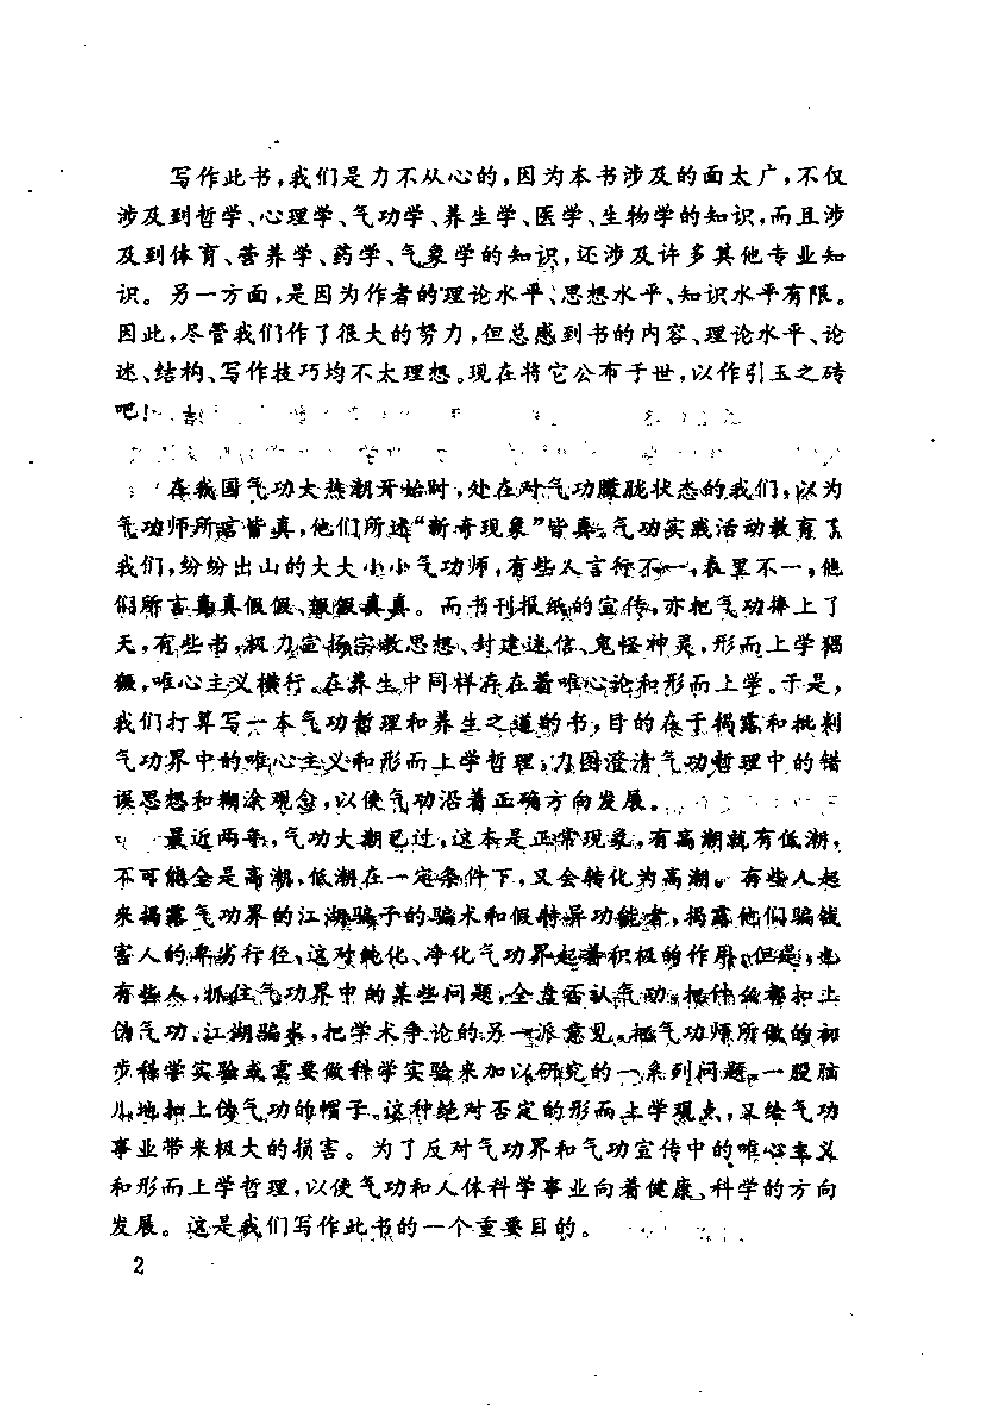 写作此书,我们是力不从心的,因为本书涉及的面太广,不仅
涉及到哲学、心理学、气功学、养生学、医学、生物学的知识,而且涉
及到体育、营养学、药学、气象学的知识,还涉及许多其他专业知
识。另一方面,是因为作者的理论水平、思想水平、知识水平有限。
因此,尽管我们作了很大的努力,但总感到书的内容、理论水平、论
述、结构、写作技巧均不太理想。现在将它公布于世,以作引玉之砖
吧!
在我国气功大热潮开始时,处在对气功朦胧状态的我们,误为
气功师所言皆真,他们所述“新奇现象”皆真。气功实践活动教育了
我们,纷纷出山的大大小小气功师,有些人言行不一,表里不一,他
们所言真真假假、假假真真。而书刊报纸的宣传,亦把气功捧上了
天,有些书,极力宣扬宗教思想、封建迷信、鬼怪神灵,形而上学猖
獗,唯心主义横行。在养生中同样存在着唯心论和形而上学。于是,
我们打算写一本气功哲理和养生之道的书,目的在于揭露和批判
气功界中的唯心主义和形而上学哲理,力图澄清气功哲理中的错
误思想和糊涂观念,以使气功沿着正确方向发展。
最近两年,气功大潮已过,这本是正常现象,有高潮就有低潮,
不可能全是高潮,低潮在一定条件下,又会转化为高潮。有些人起
来揭露气功界的江湖骗子的骗术和假特异功能者,揭露他们骗钱
害人的卑劣行径,这对纯化、净化气功界起着积极的作用。但是,也
有些人,抓住气功界中的某些问题,全盘否认气功,把什么都扣上
伪气功、江湖骗术,把学术争论的另一派意见,把气功师所做的初
步科学实验或需要做科学实验来加以研究的一系列问题,一股脑
儿地扣上伪气功的帽子。这种绝对否定的形而上学观点,又给气功
事业带来极大的损害。为了反对气功界和气功宣传中的唯心主义
和形而上学哲理,以使气功和人体科学事业向着健康、科学的方向
发展。这是我们写作此书的一个重要目的。
2